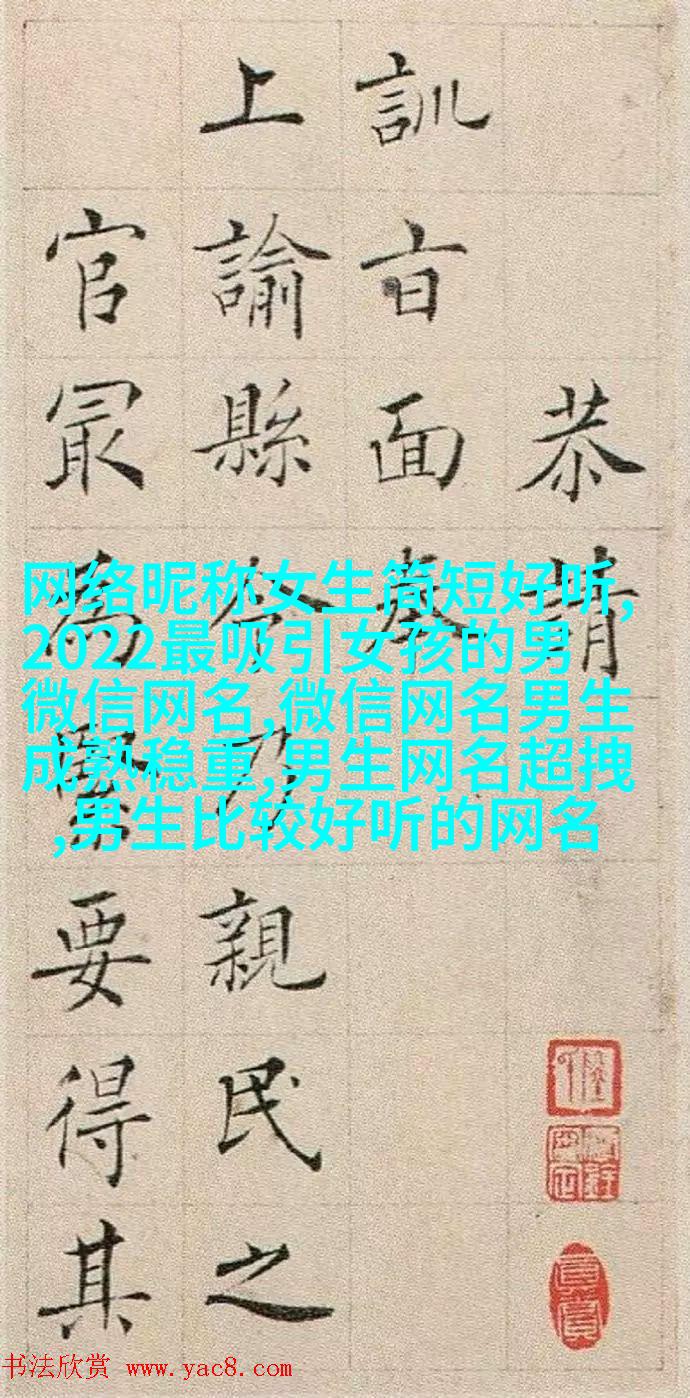 恭請
訓㫖面奉
上諭縣令乃親民之
官冣為緊要得其
网络昵称女生简短好听,
2022最吸引女孩的男
微信网名,微信网名男生
成熟稳重,男生网名超拽
,男生比较好听的网名
书法欣赏 www.yac8.com